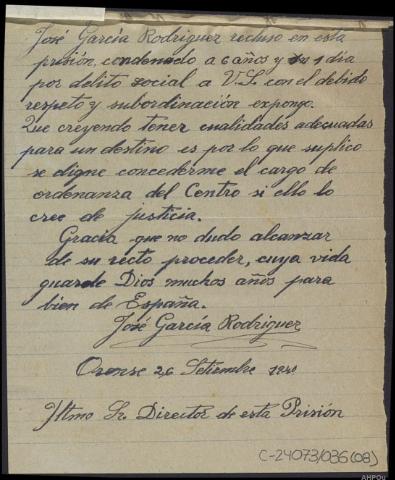 José García Rodriguez recluso en esta
prisión, condenado a 6 años y 1 dia
por delito social a V.S. con el debido
respeto y subordinación expongo.
Que creyendo tener cualidades adecuadas
para un destino es por lo que suplico
se digne concederme el cargo de
ordenanza del Centro si ello lo
cree de justicia.
Gracia que no dudo alcanzar
de su recto proceder, cuya vida
guarde Dios muchos años para
bien de España.
José García Rodriguez
Orense 26 Setiembre 1940
Iltmo Sr Director de esta Prisión
C-24073/036(08)
AHPOu